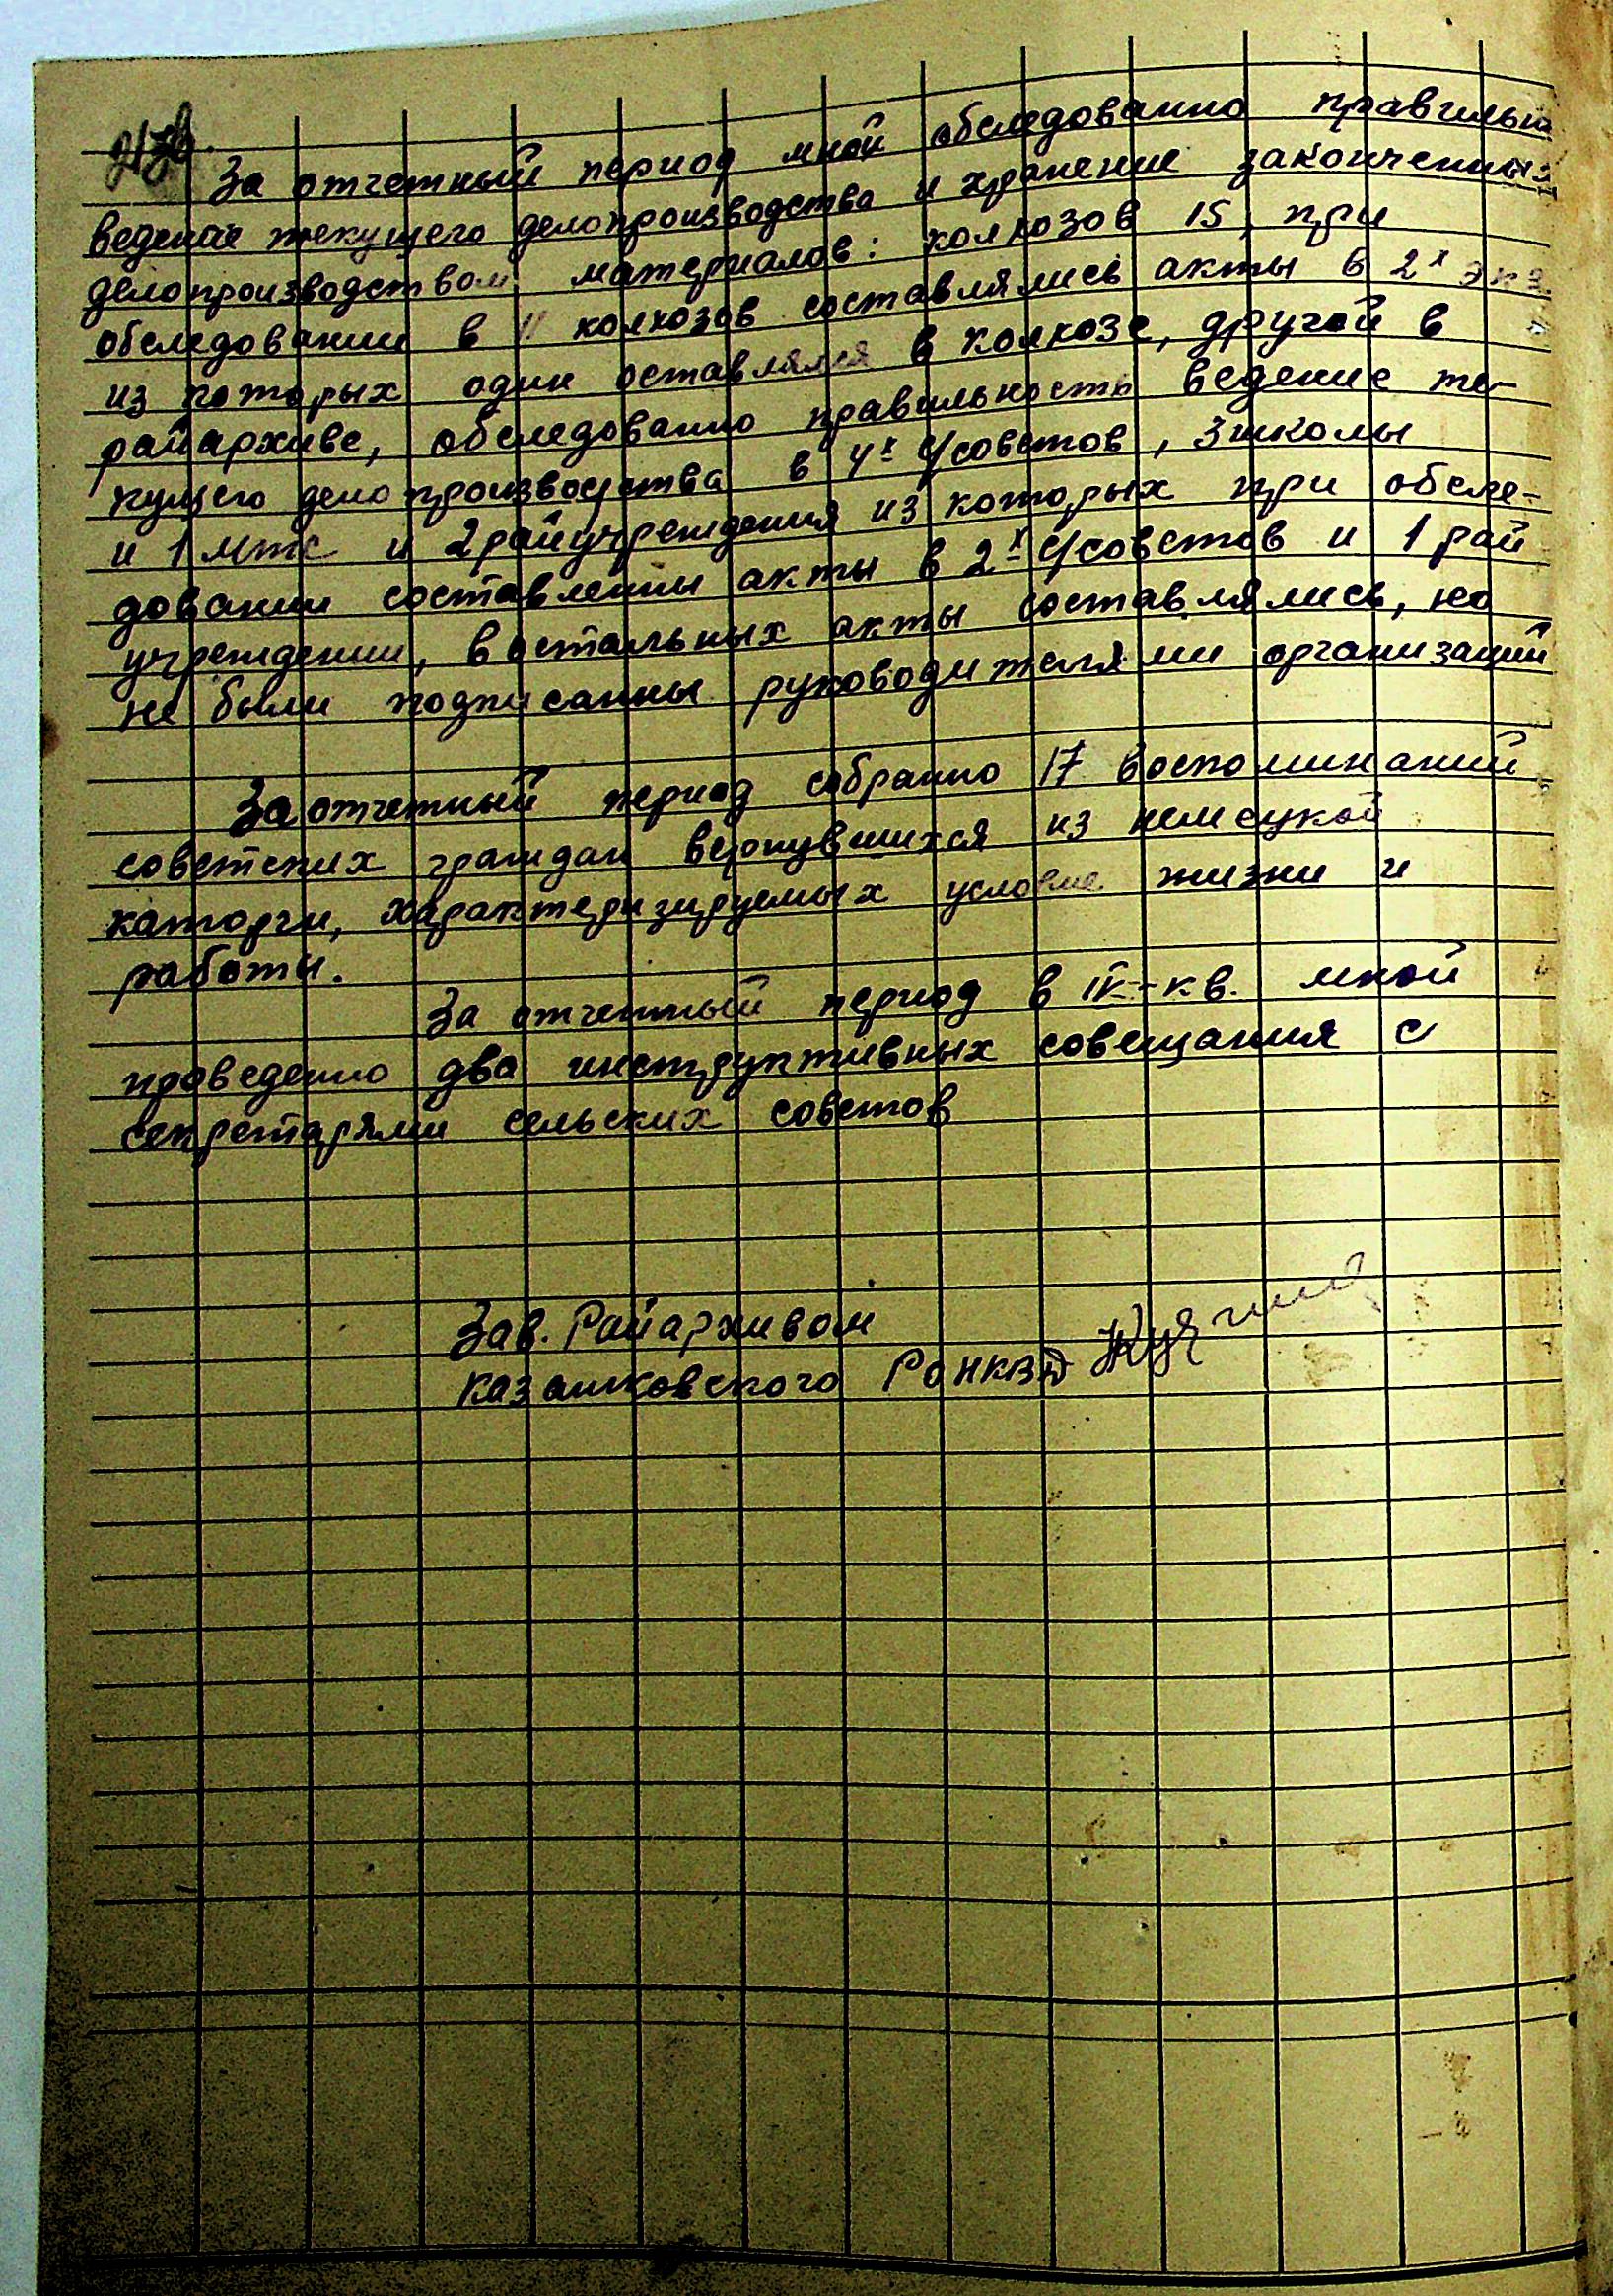 За отчетный период мной обследованно правильн
ведение текущего делопроизводства и хранение законченных
делопроизводством материалов: колхозов 15, при
обследовании в 11 колхозов составлялись акты в 2х экз.
из которых один оставлялся в колхозе, другой в
райархиве, обследованно правильность ведение те-
кущего делопроизводства в 4х с/советов, 3 школы
и 1 мтс и 2 райучреждения из которых при обсле-
довании составленны акты в 2х с/советов и 1 рай
учреждении, в остальных акты составлялись, но
не были подписанны руководителями организаций
За отчетный период собранно 17 воспоминаний
советских граждан вернувшихся из немецукой
каторги, характеризируемых условие жизни и
работы.
За отчетный период в IV-кв. мной
проведенно два инструктивных совещания с
секретарями сельских советов
Зав. Райархивом
Казанковского РОНКВД